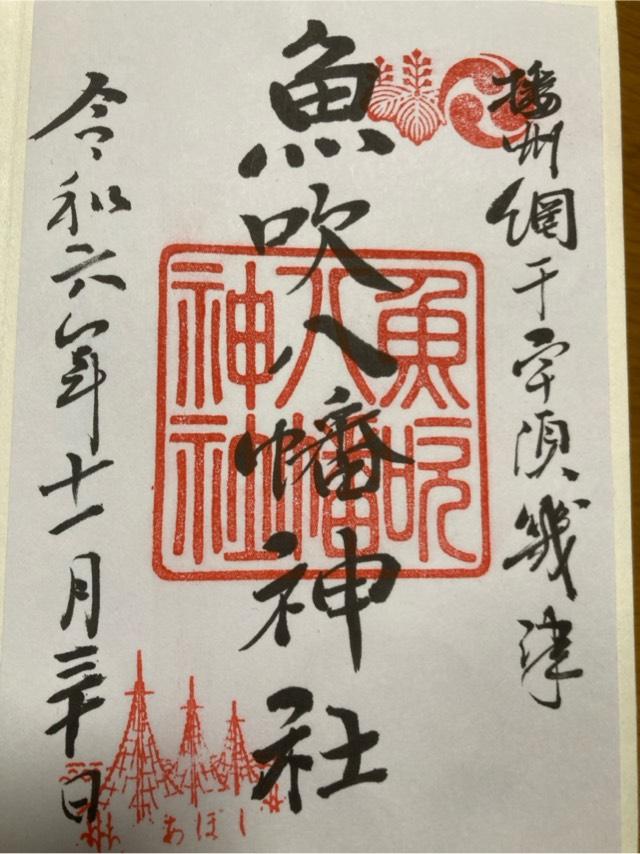 播州網干宇須幾津
魚吹八幡神社
魚吹八幡神社
令和六年十一月三十日
あぼし